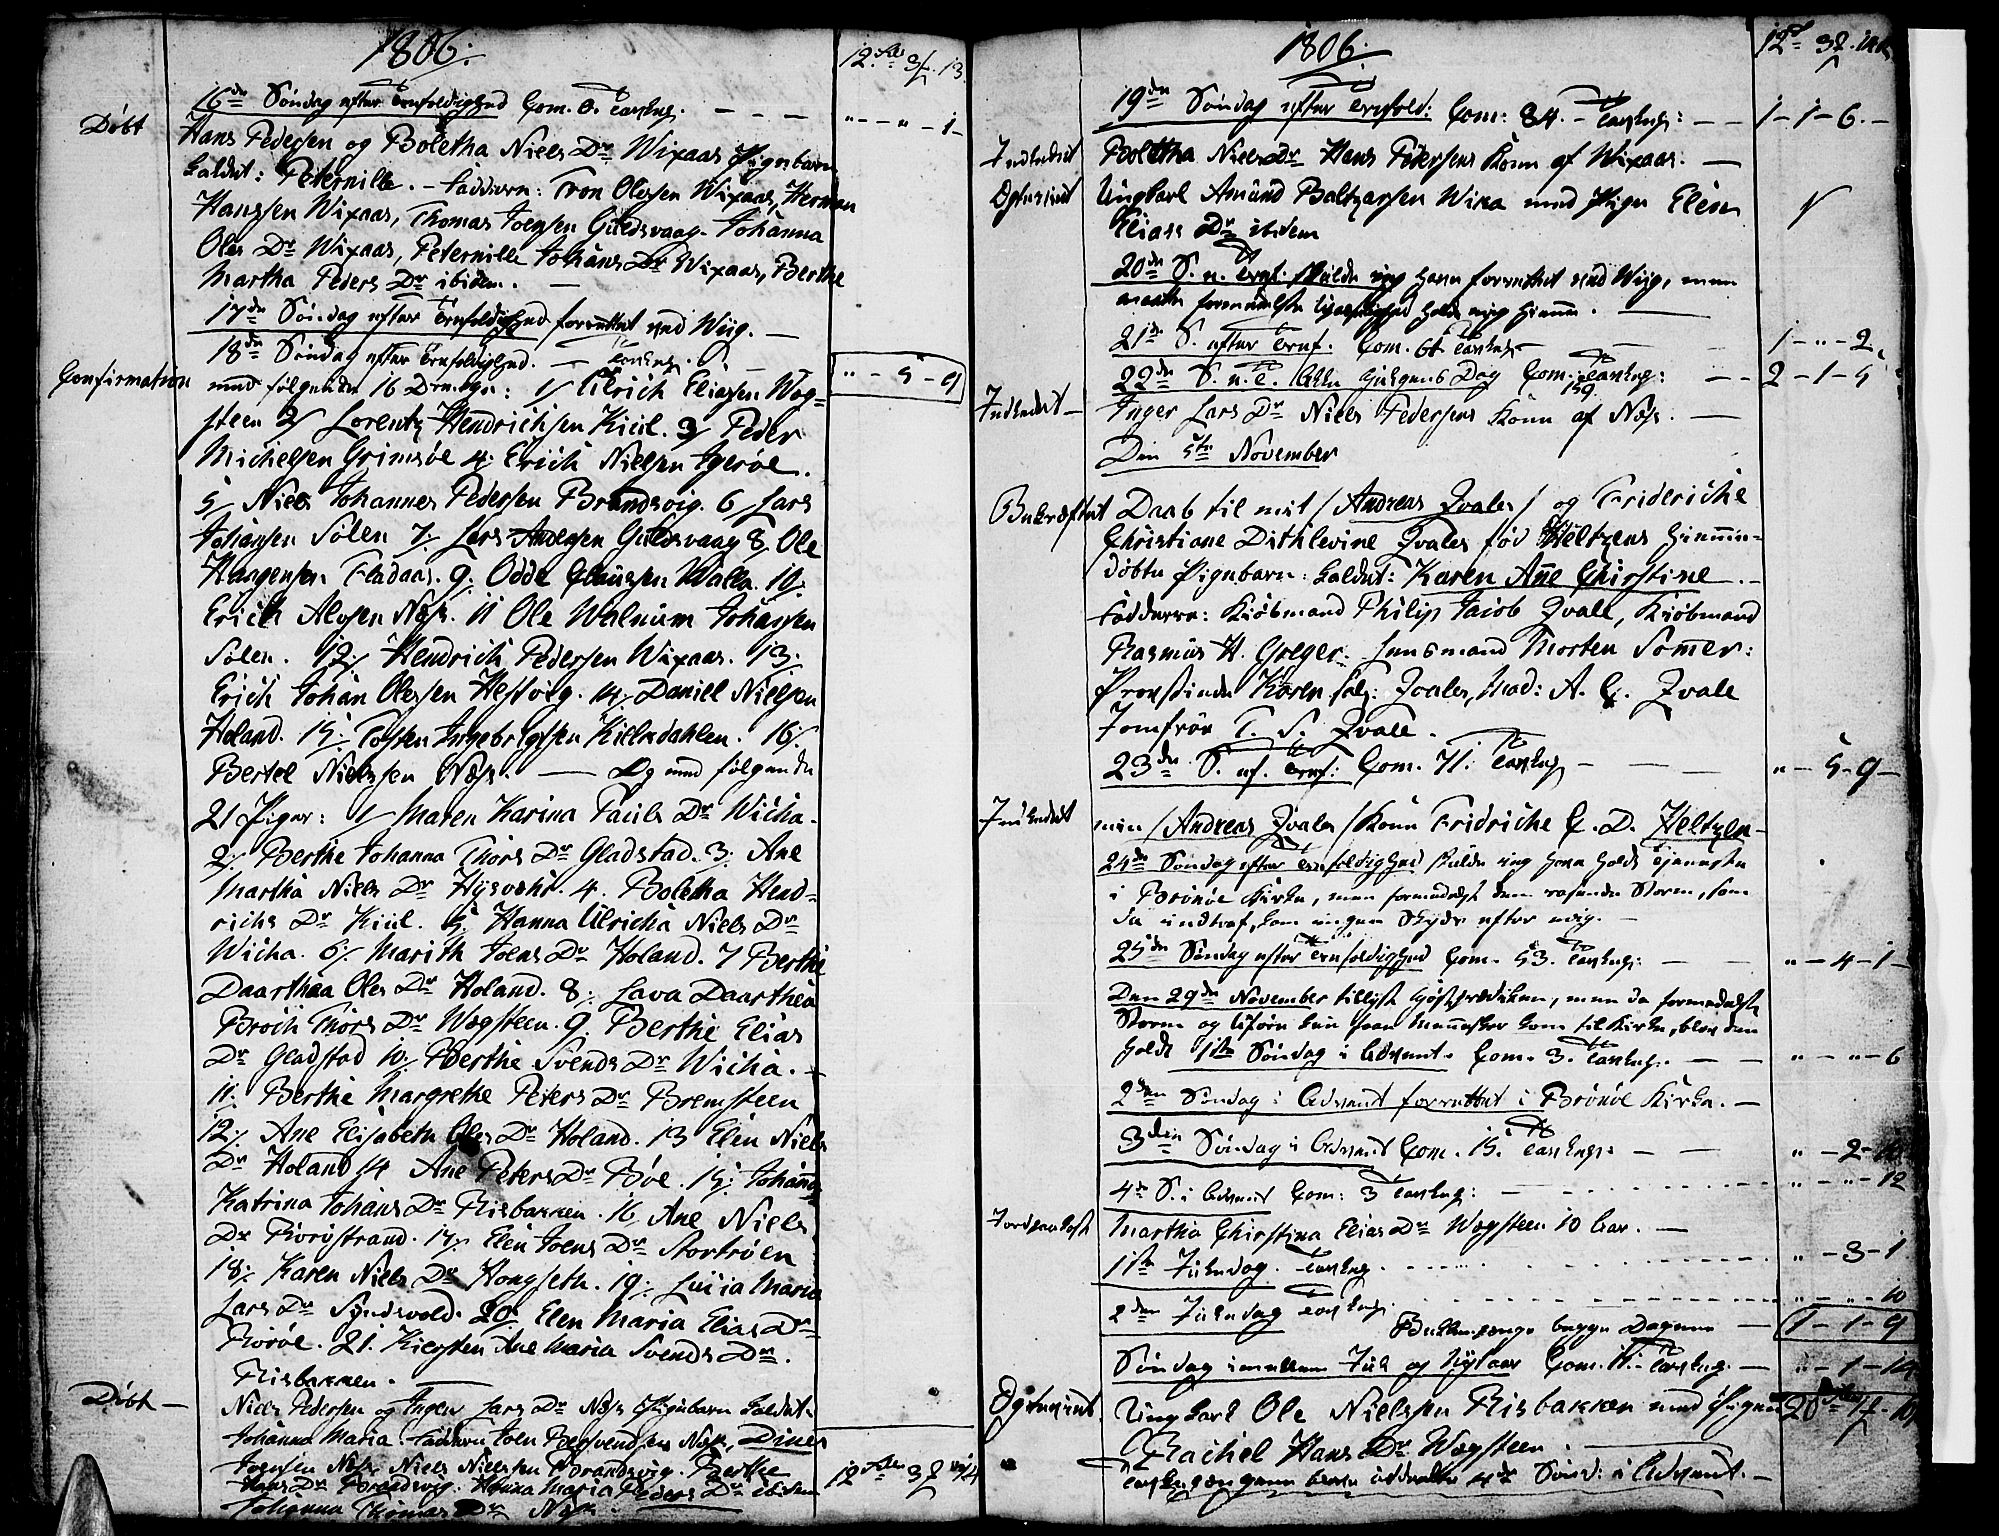 1806.
12 3 13
16de Søndag efter Trefoldighed Com. 0. Tavlep. " - " - 1 -
Døbt
Hans Pedersen og Boletha Niels Dr Wixaas Pigebarn
kaldet: Peternille. - Faddere: Tron Olesen Wixaas, Herman
Hanssen Wixaas, Thomas Joensen Guldsvaag. Johanna
Oles Dr Wixaas, Peternille Johans Dr Wixaas, Berthe
Martha Peders Dr ibidem. -
17de Søndag efter Trefoldighed forrettet ved Wiig. -
18de Søndag efter Trefoldighed. - " - 5 - 9
Confirmation
med følgende 16 Drenge: 1/ Ulrich Eliasen Wog=
steen 2/ Lorentz Hendrichsen Kiul. 3/ Peder
Michelsen Grimsøe 4/ Erich Nielsen Igerøe.
5/ Niels Johannes Pedersen Brandsvig. 6/ Lars
Johansen Solen 7/ Lars Andersen Guldsvaag 8/ Ole
Haagensen Fladaas. 9. Odde Clausen Walla. 10.
Erich Alvsen Næss. 11 Ole Walnum Johansen
Solen. 12/ Hendrich Pedersen Wixaas. 13/
Erich Johan Olessen Hestvig. 14/ Daniel Nielsen
Holand. 15/ Tosten Ingebrigtsen Killedahlen. 16/
Bertel Nielssen Næss. - Og med følgende
21 Piger: 1/ Maren Karina Pauls Dr Wicha.
2/ Berthe Johanna Thors Dr Gladstad. 3/ Ane
Martha Niels Dr 4. Boletha Hend=
richs Dr Kiul. 5. Hanna Ulricha Niels Dr
Wicha. 6/ Marith Joens Dr Holand. 7 Berthe
Daarthea Oles Dr Holand. 8/ Lava Daarthea
Broch Thors Dr Wogsteen. 9. Berthe Elias
Dr Gladstad 10/ Berthe Svends Dr Wicha. -
11/ Berthe Margrethe Peters Dr Bremsteen
12/ Ane Elisabeth Oles Dr Holand. 13 Elen Niels
Dr Holand 14 Ane Peters Dr Bøe. 15/ Johanna
Katrina Johans Dr Risbakken. 16 Ane Niels
Dr Rorøstrand. 17/ Elen Joens Dr Stortrøen
18/ Karen Niels Dr Hongseth. 19/ Lucia Maria
Lars Dr 20/ Elen Maria Elias Dr
Rorøe. 21. Kiersten Ane Maria Svends Dr.
Risbakken.
Døbt -
Niels Pedersen og Inger Lars Dr Næss Pigebarn kaldet.
Johanna Maria. Faddere Joen Næss,
Joensen Næss Niels Nielssen Brandsvig. Berthe
Hans Dr Brandsvig. Hanna Maria Peders Dr ibidem
Johanna Thomas Dr Næss
12 3 14
1806.
12 3
19de Søndag efter Trefold: Com: 84. - Tavlep: - - 1 - 1 - 6 -
Indledet
Boletha Niels Dr Hans Pedersens Kone af Wixaas. -
Ungkarl Amund Baltzersen Wika med Pige Elen
Elias Dr ibidem
20de S. e. Tref: skulde jeg have forrettet ved Wiig, men
maatte formedelst holde mig hiemme. -
21de S. efter Tref. Com. 61 Tavlep - 1 - " - 2
22de S. e. T. Alle Helgens Dag Com. 159 Tavlep: - 2 - 1 - 5
Indledet -
Inger Lars Dr Niels Pedersens Kone af Næss. -
Den 5te November
Bekræftet
Daab til mit / Andreas Zvales / og Frideriche
Christiane Dithlevine Zvales fød Heltzens hiemme=
døbte Pigebarn: kaldet: Karen Ane Chirstine.
Faddere: Kiøbmand Philip Jacob Zvale, Kiøbmand
Rasmus H. Greger. Lensmand Morten Somer:
Provstinde Karen Zvales, Mad: A. C. Zvale
Jomfrue T. S. Zvale.
23de S. ef. Tref: Com. 71. Tavlep - " - 5 - 9 -
Indledet
min / Andreas Zvales / Kone Fridriche C. D. Heltzen
24de Søndag efter Trefoldighed skulde jeg have holdt Tjeneste
i Brønøe Kirke, men formedelst den rasende Storm, som
da indtraf, kom ingen Skyds efter mig. -
25de Søndag efter Trefoldighed Com. 53. Tavlep: " - 4 - 1 -
Den 29de November tillyst Høstprædiken, men da formedelst
Storm og Uføre kun faae Mennesker kom til Kirke, blev den
holdt 1ste Søndag i Advent. Com. 3. Tavlep. - " - " - 6
2den Søndag i Advent forrettet i Brønøe Kirke. -
3die Søndag i Advent Com. 15. Tavlep: - " - 2 -
4de S. i Advent Com: 3 Tavlep: " - " - 12
Jordpaakast
Martha Chirstina Elias Dr Wogsteen 10 Aar. -
1ste Juledag. Tavlep. " - 3 - 1
2den Juledag Tavlep. " - " - 10
begge Dagene - 1 - 1 - 9
Søndag imellem Juul og Nytaar Com. 11. Tavlep. - " - 1 - 14
Ungkarl Ole Nielssen Risbakken med Pigen
Rachel Hans Dr Wogsteen.
4de Sønd: i Advent. -